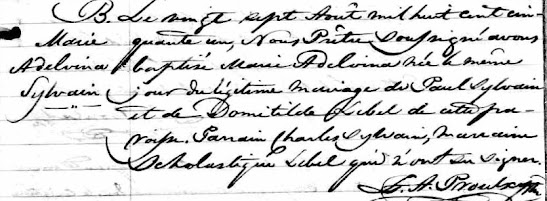 B. Le vingt sept Août mil huit cent cin-
Marie quante un, Nous Prêtre Soussigné avons
Adelvina baptisé Marie Adelvina née le même
Sylvain jour du légitime mariage de Paul Sylvain
et de Domitilde Lebel de cette pa-
roisse. Parrain Charles Sylvain, marraine
Scholastique Lebel qui n'ont su signer.
L. A. Proulx Ptre